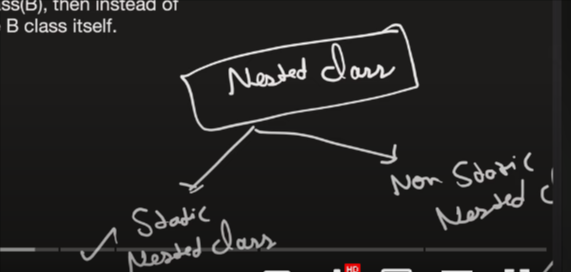 ss(B), then instead of
B class itself.
Nested class
Static
Nested class
Non Static
Nested c
HD